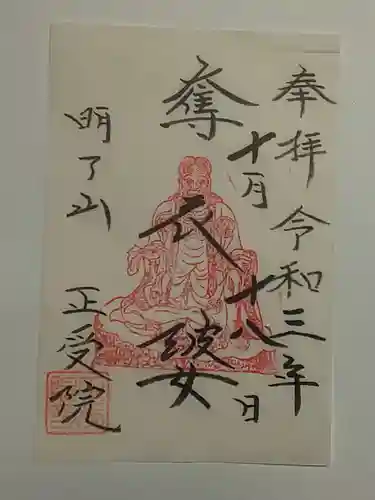 奉拝 令和三年
十月十八日
奪衣婆
明了山
正受院